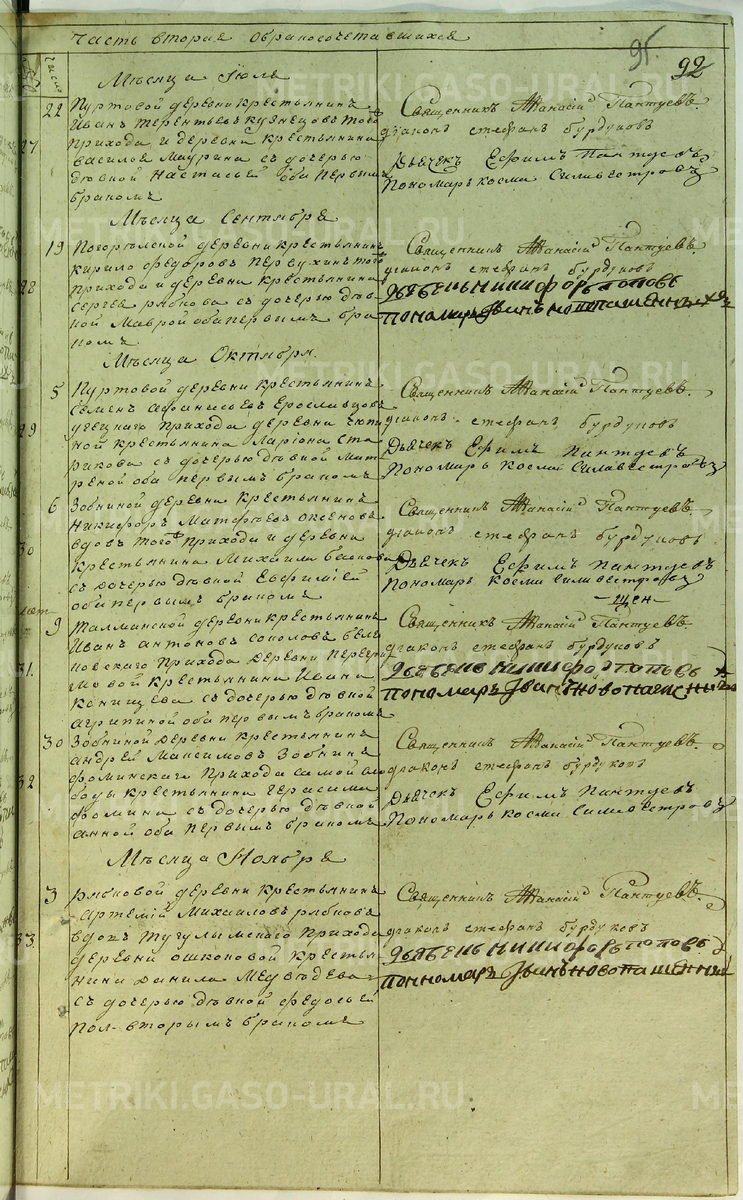 Часть вторая О бракосочетавшихся
95
92
Мѣсяца Июля
22 Пуртовой деревни крестьянинъ
Иванъ Терентьевъ Кузнецовъ того
27 прихода и деревни крестьянина
василья Маурина съ дочерью
дѣвкой Настасьей оба первымъ
бракомъ
Священникъ Афанасій Пантуевъ
диаконъ стефанъ бурдуковъ
Дьячекъ Ефимъ Пантуевъ
Пономарь косма Силивестровъ
Мѣсяца Сентября
19 Погорѣлской деревни крестьянинъ
кирило федоровъ Первухинъ того
28 прихода и деревни крестьянина
Сергея рябкова съ дочерью дѣв
кой Маврой оба первымъ бра
комъ
Священникъ Афанасій Пантуевъ
диаконъ стефанъ бурдуковъ
дьячекъ никифоръ поповъ
пономарь Иванъ новопашенныхъ
Мѣсяца Октября
5 Пуртовой деревни крестьянинъ
Семенъ афанасьевъ Ерославцовъ
29 прихода деревни
ной крестьянина Лариона Ста
рикова съ дочерью дѣвкой мат
реной оба первымъ бракомъ
Священникъ Афанасій Пантуевъ
диаконъ стефанъ бурдуковъ
Дьячекъ Ефимъ Пантуевъ
Пономарь косма Силивестровъ
6 Зобниной деревни крестьянинъ
Никифоръ Матфеевъ Оксеновъ
30 вдовъ того прихода и деревни
крестьянина Михаила
съ дочерью дѣвкой Евфимией
оба первымъ бракомъ
Священникъ Афанасій Пантуевъ
диаконъ стефанъ бурдуковъ
Дьячекъ Ефимъ Пантуевъ
Пономарь косма Силивестровъ
9 Талманской деревни крестьянинъ
Иванъ антоновъ соколовъ беля
31. ковскаго прихода деревни
мовой крестьянина Ивана
Конищева съ дочерью дѣвкой
агрипиной оба первымъ бракомъ
Священникъ Афанасій Пантуевъ
диаконъ стефанъ бурдуковъ
дьячекъ никифоръ поповъ
пономарь Иванъ новопашенныхъ
30 Зобниной деревни крестьянинъ
андрей Максимовъ Зобнинъ
32 фоминскаго прихода самой сло
боды крестьянина Герасима
Фомина съ дочерью дѣвкой
анной оба первымъ бракомъ
Священникъ Афанасій Пантуевъ
диаконъ стефанъ бурдуковъ
Дьячекъ Ефимъ Пантуевъ
Пономарь косма Силивестровъ
Мѣсяца Ноября
3 рябковой деревни крестьянинъ
Артемій Михайловъ рябковъ
33. вдовъ Тугулымскаго прихода
деревни ошкоковой кресть
нина данила Медвѣдева
съ дочерью дѣвкой федосьей
пол-вторымъ бракомъ
Священникъ Афанасій Пантуевъ
диаконъ стефанъ бурдуковъ
дьячекъ никифоръ поповъ
пономарь Иванъ новопашенный
METRIKI.GASO-URAL.RU